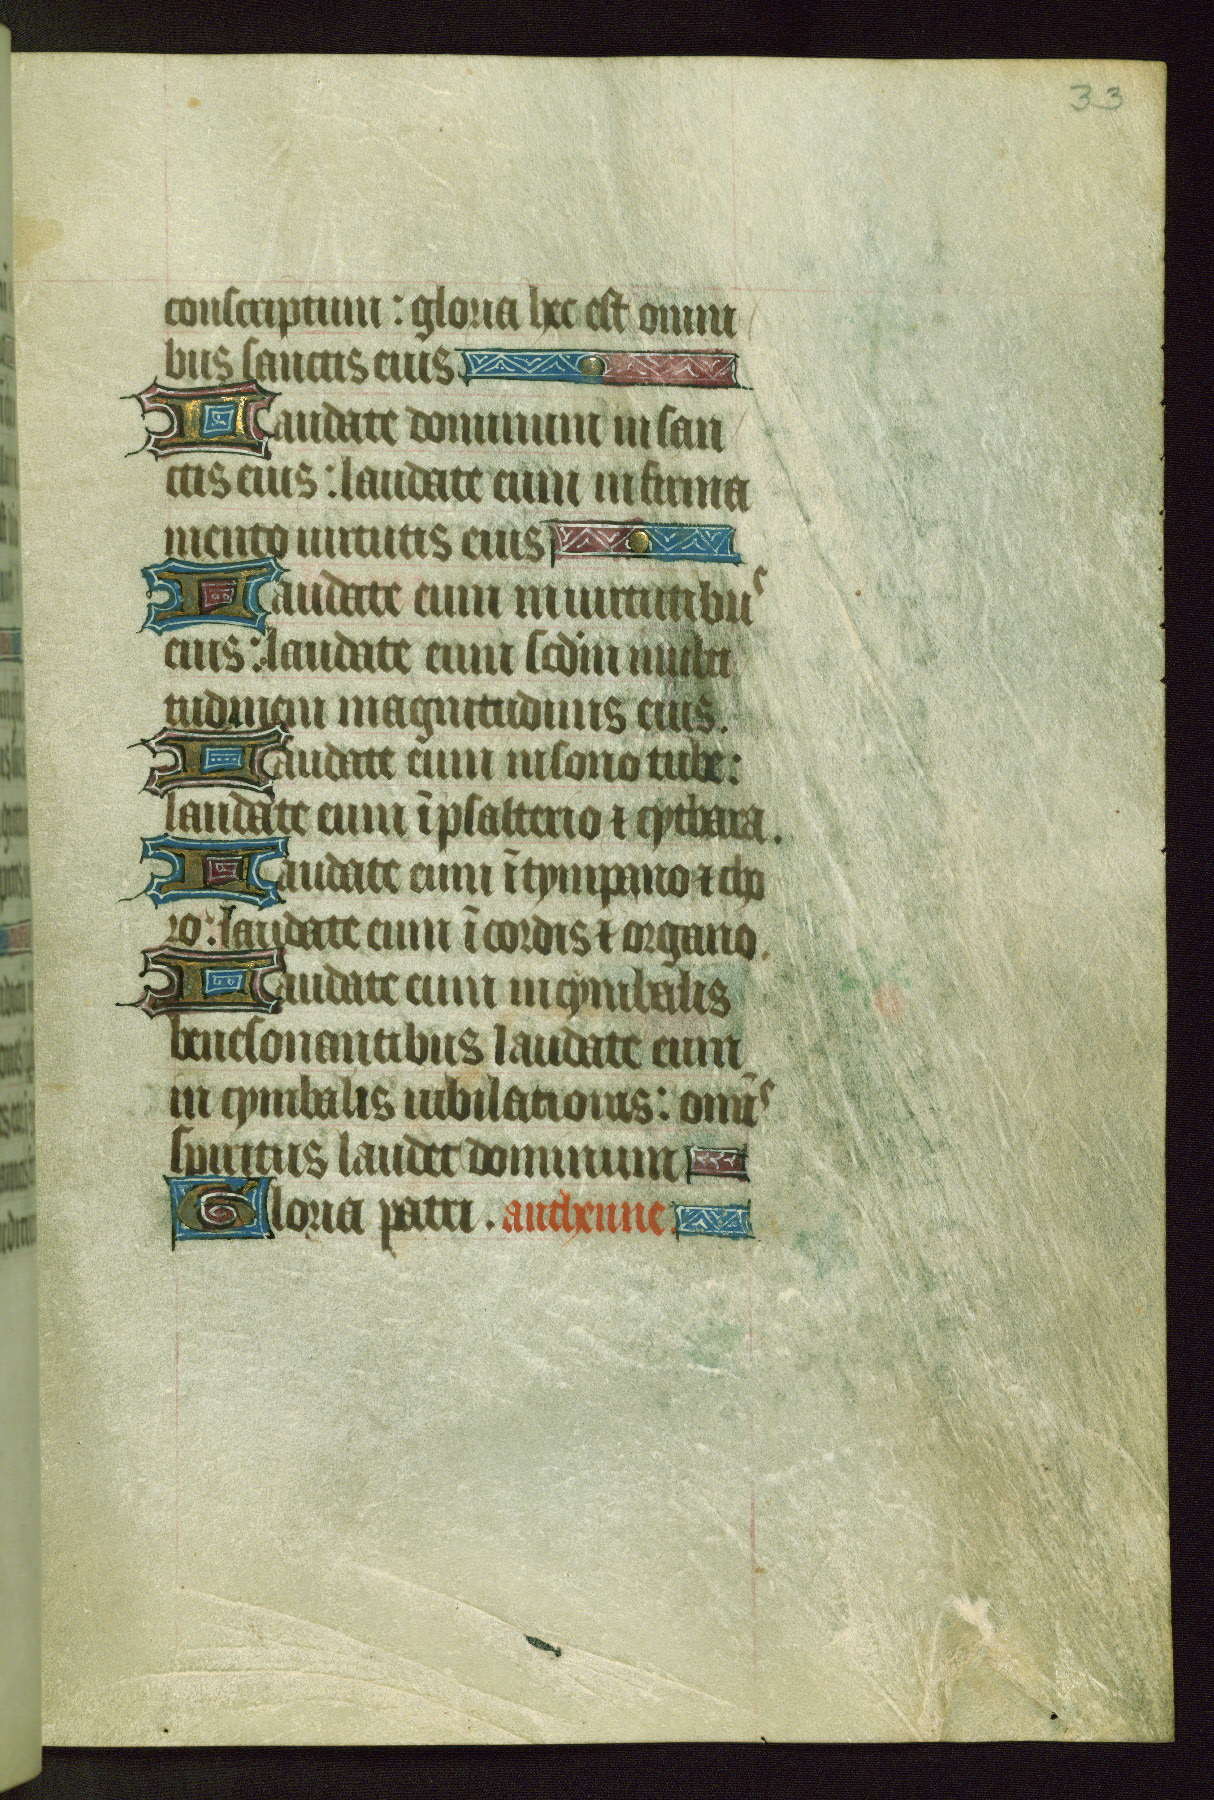 33
conscriptum : gloria hec est omni
bus sanctis eius
Laudate dominum in san
ctis eius : laudate eum in firma
mento uirtutis eius
Laudate eum in uirtutibus
eius : laudate eum scdm multi
tudinem magnitudinis eius .
Laudate eum in sono tube :
laudate eum ī psalterio ⁊ cythara .
Laudate eum ī tympano ⁊ cho
ro : laudate eum ī cordis ⁊ organo .
Laudate eum in cymbalis
benesonantibus laudate eum
in cymbalis iubilationis : omīs
spiritus laudet dominum
Gloria patri . anthenne .